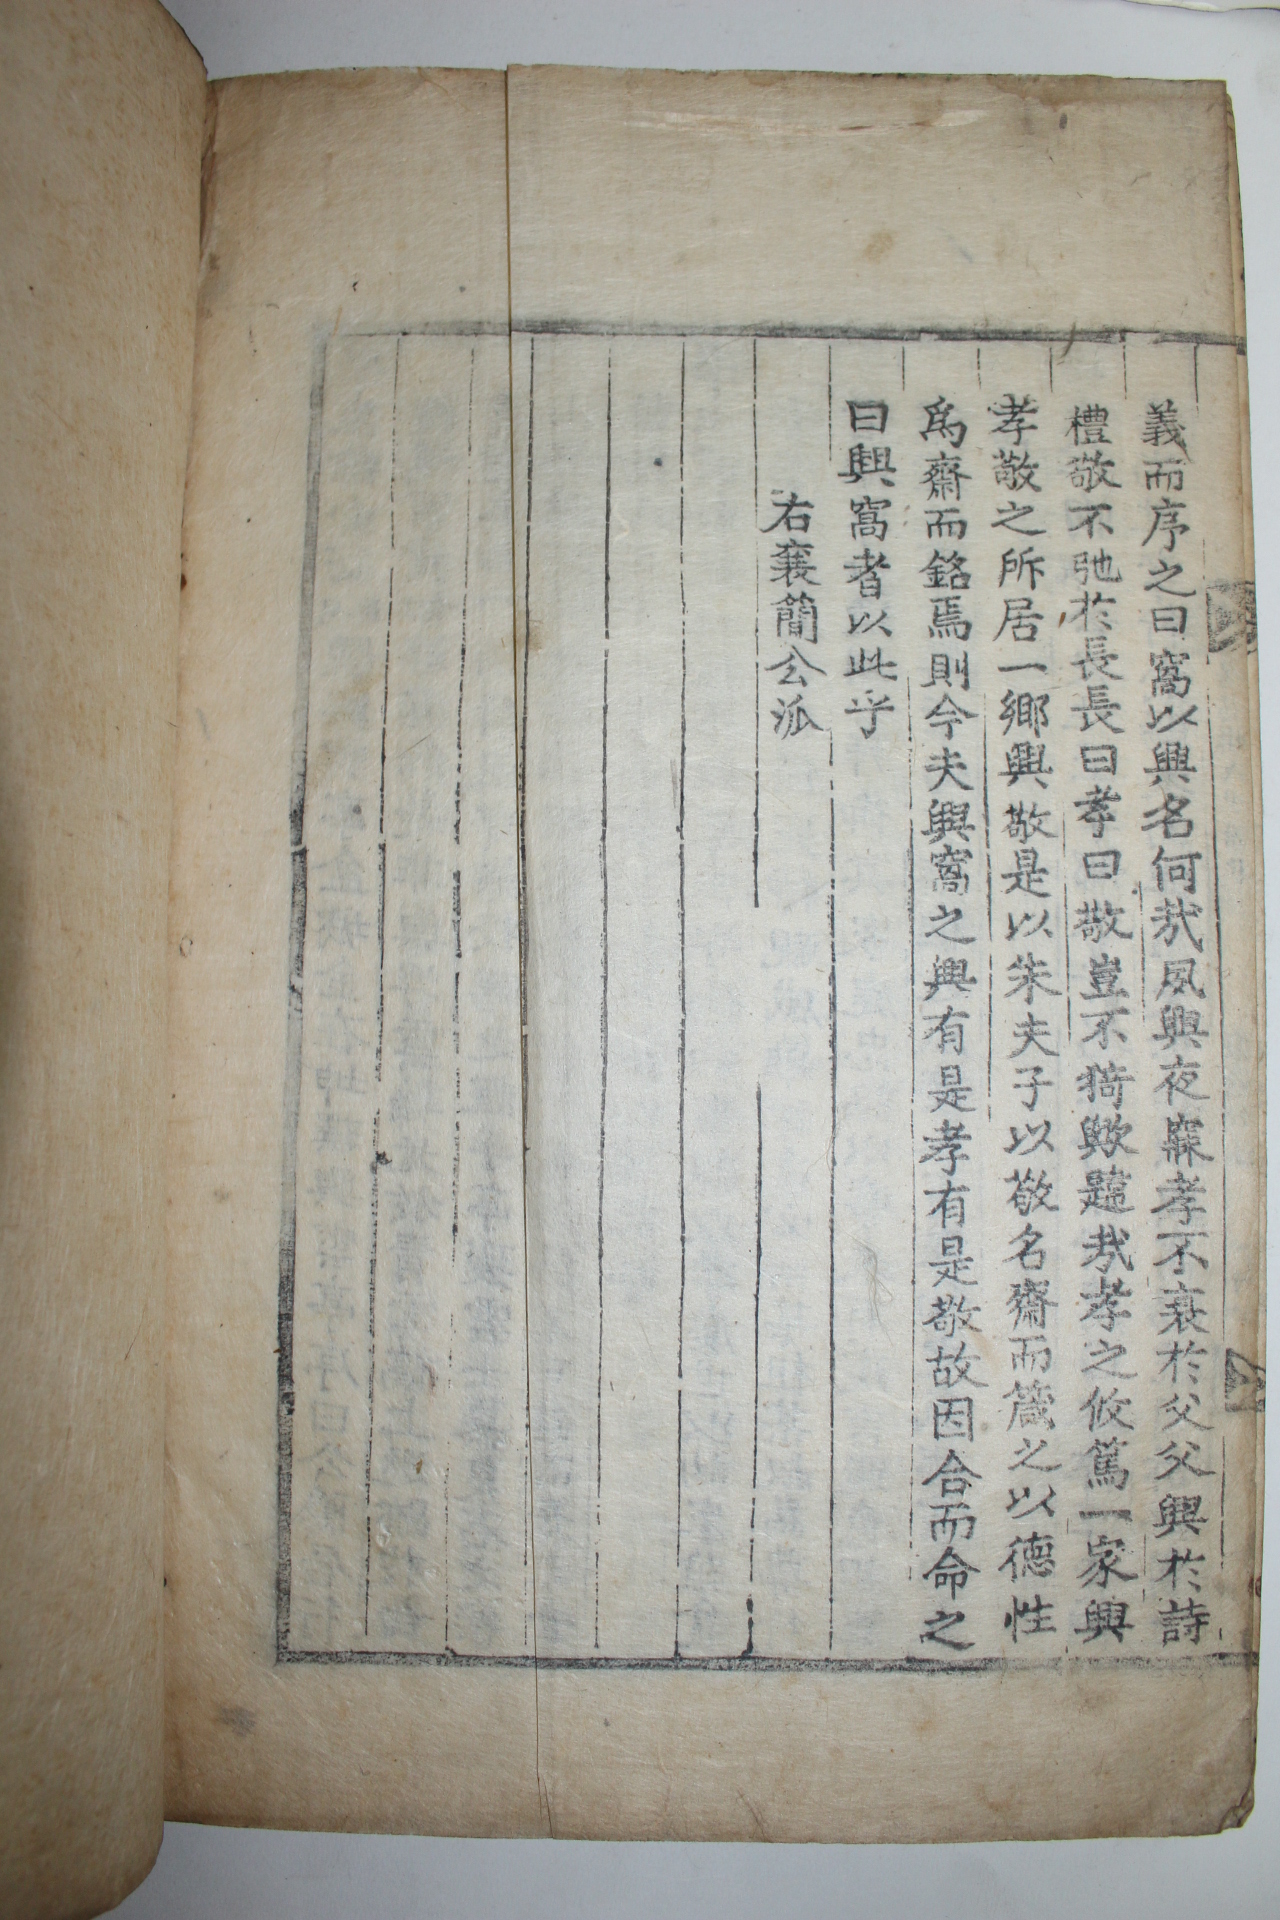 義而序之曰窩以興名何㢤夙興夜寐孝不衰於父父興於詩
禮敬不弛於長長曰孝曰敬豈不猗歟韙㢤孝之攸篤一家興
孝敬之所居一鄉興敬是以朱夫子以敬名齋而箴之以德性
爲齋而銘焉則今夫興窩之興有是孝有是敬故因合而命之
曰興窩者以此乎
右襄簡公派